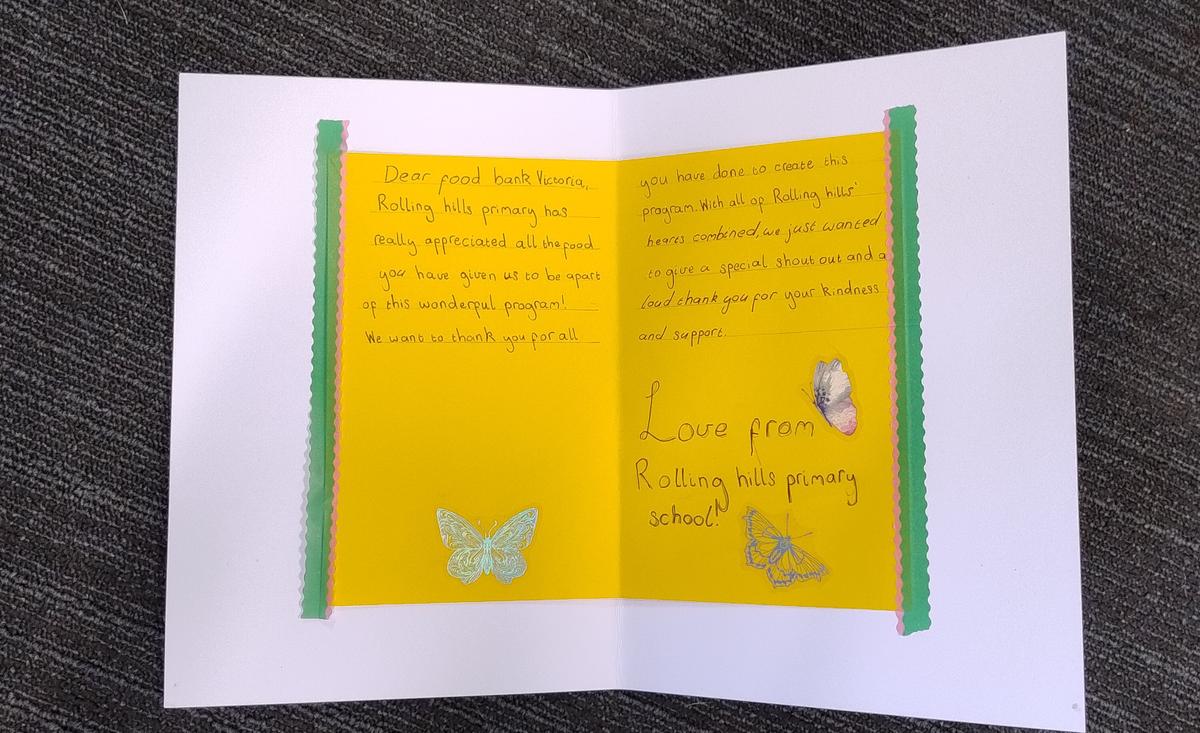 Dear food bank Victoria,
Rolling hills primary has
really appreciated all the food
you have given us to be apart
of this wonderful program!
We want to thank you for all
you have done to create this
program. With all of Rolling hills'
hearts combined, we just wanted
to give a special shout out and a
loud thank you for your kindness
and support.
Love from
Rolling hills primary
school!